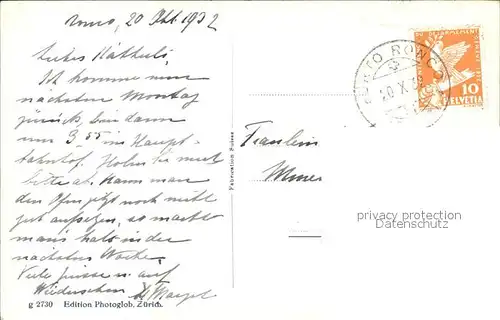 20 Okt. 1932
Liebes Käthuli,
Ich komme nun
nächsten Montag
zurück, bin dann
um 3.55 im Haupt-
bahnhof. Holen Sie mich
bitte ab. Kann man
den Ofen jetzt noch nicht
gut aufsetzen, so macht
man's halt in der
nächsten Woche.
Viele Grüsse u. auf
Wiedersehen
g 2730 Edition Photoglob, Zürich.
Fabrication Suisse
PORTO RONCO
20.X.32
10
HELVETIA
Fräulein
privacy protection
Datenschutz